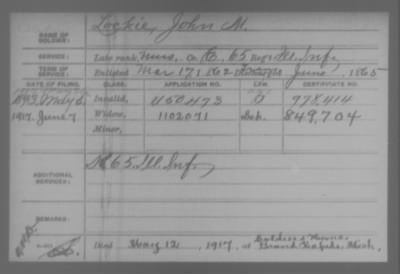 NAME OF SOLDIER: Lockie, John M.
SERVICE: Late rank, Mus, Co. E, 65 Reg't Ill. Inf.
TERM OF SERVICE: Enlisted Mar 17, 1862 June, 1865
DATE OF FILING. CLASS. APPLICATION NO. LAW. CERTIFICATE NO.
Invalid, 978,414
1917, June 7 Widow, 1102071 849,704
Minor,
65 Ill. Inf.
ADDITIONAL SERVICES:
REMARKS:
Died May 12, 1917, at Soldiers Home
Grand Rapids, Mich.